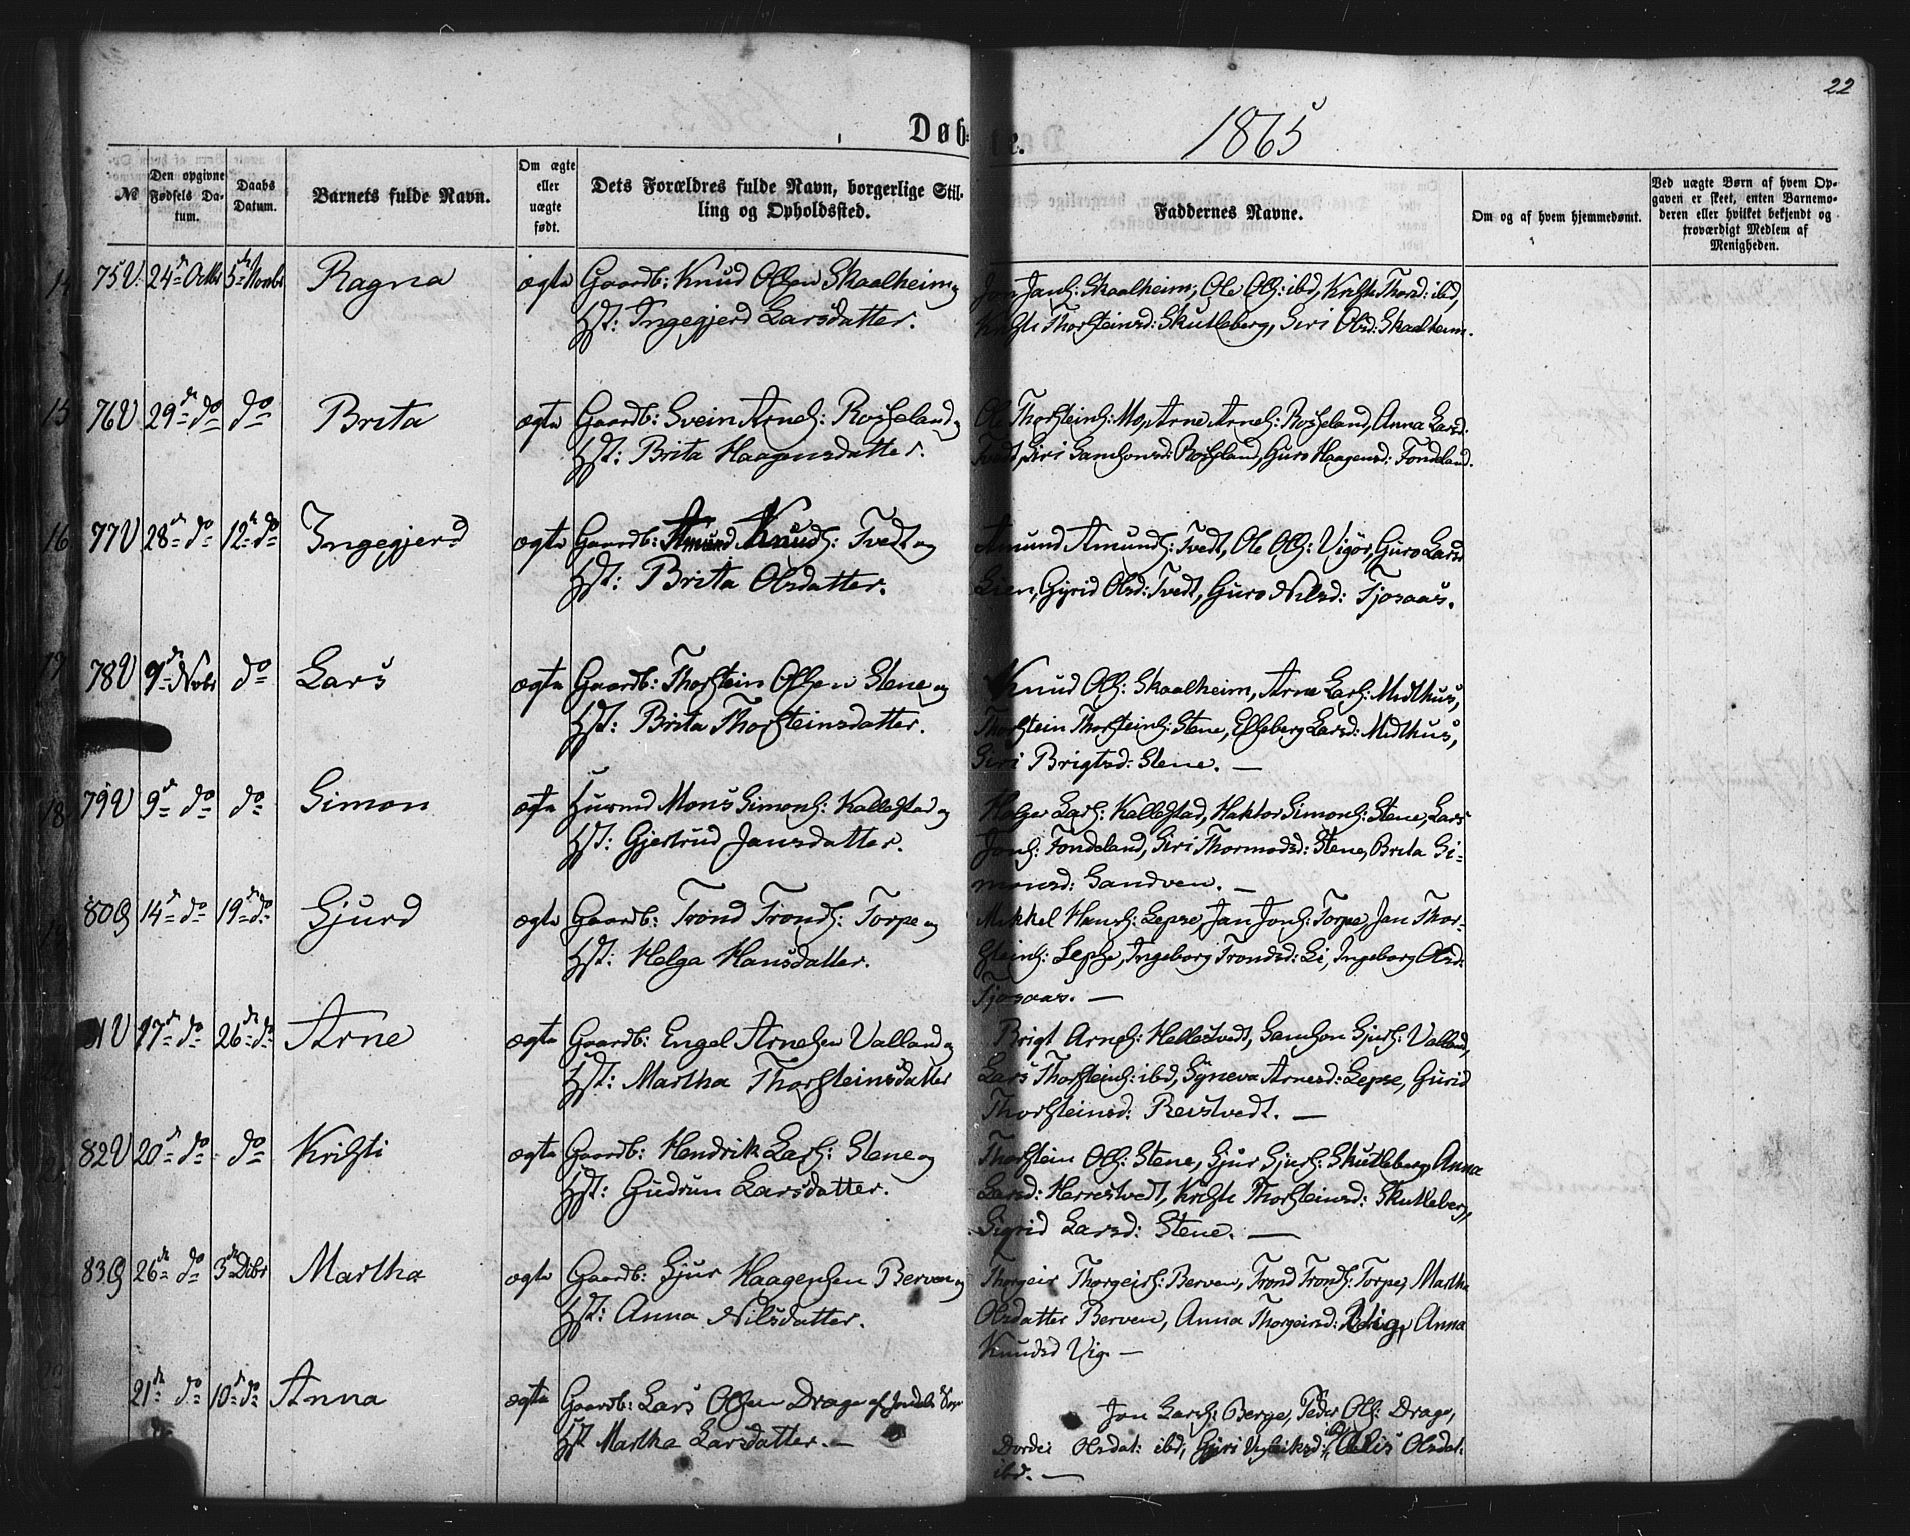 22
Døbte.
1865
№
Den opgivne Fødsels Datum.
Daabs Datum.
Barnets fulde Navn.
Om ægte eller uægte født.
Dets Forældres fulde Navn, borgerlige Stilling og Opholdssted.
Faddernes Navne.
Om og af hvem hjemmedøbt.
Ved uægte Børn af hvem Opgaven er skeet, enten Barnemoderen eller hvilket bekjendt og troværdigt Medlem af Menigheden.
75V. 24de Octbr 5te Novbr Ragna ægte Gaardb: Knud Olsen Skaalheim og
Hst: Ingegjerd Larsdatter.
Jon Jans: Skaalheim, Ole Ols: ibd, Kristi Thorsd: ibd,
Kristi Thorsteinsd: Skutleberg, Siri Olsd: Skaalheim.
76V 29de do do Brita ægte Gaardb: Svein Arnes: Rosseland og
Hst: Brita Haagensdatter.
Ole Thorsteins: Mo, Arne Arnes: Rosseland, Anna Larsd:
Tvedt, Siri Samsonsd: Rosseland, Guro Haagensd: Fondeland.
77V 28de do 12te do Ingegjerd ægte Gaardb: Amund Knuds: Tvedt og
Hst: Brita Olsdatter.
Amund Amunds: Tvedt, Ole Ols: Vigør, Guro Larsd
Lien, Gyrid Olsd: Tvedt, Guro Nilsd: Tjosaas.
78V 9de Novbr do Lars ægte Gaardb: Thorstein Olsen Stene og
Hst: Brita Thorsteinsdatter.
Knud Ols: Skaalheim, Arne Lars: Midthus,
Thorstein Thorsteins: Stene, Elleberg Larsd: Midthus,
Siri Brigtsd: Stene. —
79V 9de do do Simon ægte Husmd Mons Simons: Kallestad og
Hst: Gjertrud Jansdatter.
Holger Lars: Kallestad, Haktor Simons: Stene, Lars
Jons: Fondeland, Siri Thormodsd: Stene, Brita Si-
monsd: Sandven. —
80Ø 14de do 19de do Sjurd ægte Gaardb: Trond Tronds: Torpe og
Hst: Helga Hansdatter.
Mikkel Hans: Lepse, Jan Jons: Torpe, Jan Thor-
steins: Lepse, Ingeborg Trondsd: Li, Ingeborg Olsd:
Tjosaas. —
81V 17de do 26de do Arne ægte Gaardb: Engel Arnesen Valland og
Hst: Martha Thorsteinsdatter
Brigt Arnes: Hellestvedt, Samson Sjurs: Valland,
Lars Thorsteins: ibd, Syneva Arnesd: Lepse, Gurid
Thorsteinsd: Reistvedt. —
82V 20de do do Kristi ægte Gaardb: Hendrik Lars: Stene og
Hst: Gudrun Larsdatter.
Thorstein Ols: Stene, Sjur Sjurs: Skutleberg, Anna
Larsd: Herrestvedt, Kristi Thorsteinsd: Skutleberg,
Sigrid Larsd: Stene. —
83Ø 26de do 3de Dcbr Martha ægte Gaardb: Sjur Haagensen Berven og
Hst: Anna Nilsdatter.
Thorgeir Thorgeirs: Berven, Trond Tronds: Torpe, Martha
Olsdatter Berven, Anna Thorgeirsd: Vig, Anna
Knudsd Vig —
21de do 10de do Anna ægte Gaardb: Lars Olsen Drage af Jondals
Hst Martha Larsdatter. —
Jon Lars: Berge, Peder Ols: Drage,
Dordei Olsdat: ibd, Guri ibd, Olsdat:
ibd. —